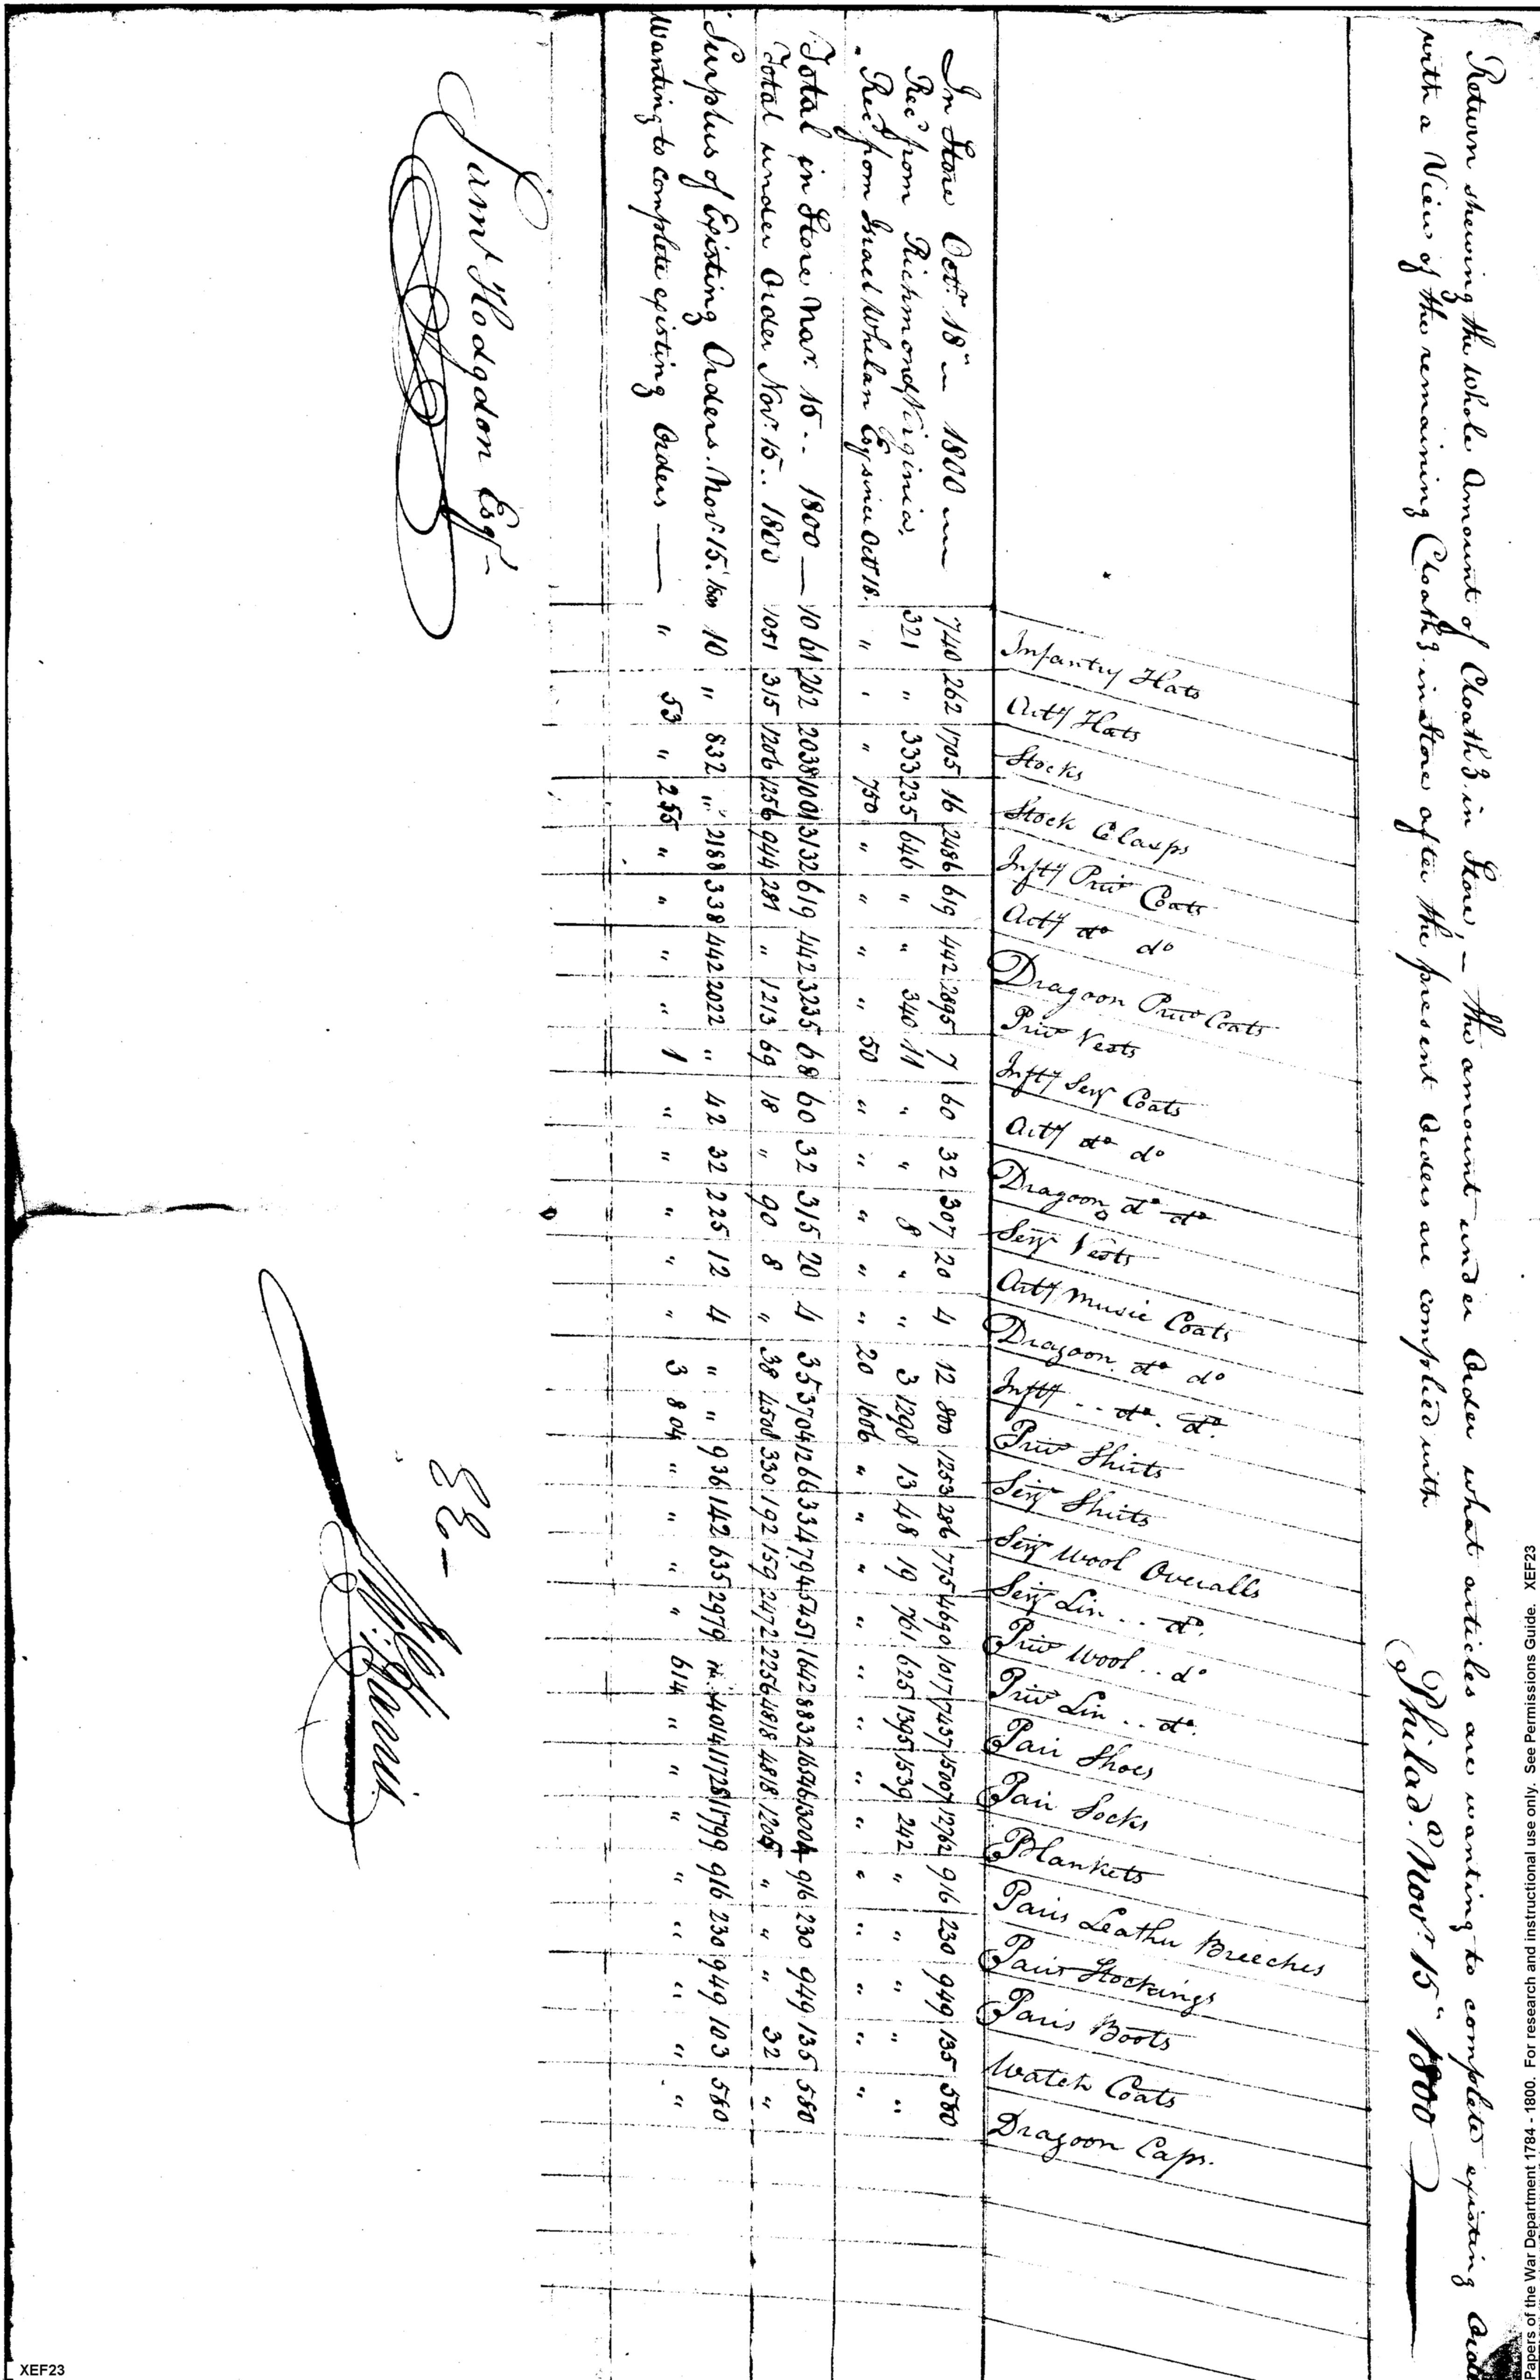 Return shewing the whole Amount of Cloathg. in Store, — the amount under Order what articles are wanting to complete existing Orde
with a View of the remaining Cloathg. in Store after the present Orders are complied with
Philada. Novr. 15" 1800
Infantry Hats
Arty Hats
Stocks
Stock Clasps
Infty Priv Coats
Arty do do
Dragoon Priv Coats
Priv Vests
Infty Serj Coats
Arty do do
Dragoon do do
Serj Vests
Arty Music Coats
Dragoon. do do
Infty .. do. do.
Priv Shirts
Serj Shirts
Serj Wool Overalls
Serj Lin .. do.
Priv Wool .. do
Priv Lin .. do.
Pair Shoes
Pair Socks
Blankets
Pairs Leather Breeches
Pairs Stockings
Pairs Boots
Watch Coats
Dragoon Caps.
In Store Octr. 18" 1800 740 262 1705 16 2486 619 442 2895 7 60 32 307 20 4 12 800 1253 286 775 4690 1017 7437 15007 12762 916 230 949 135 580
Recd from Richmond Virginia. 321 " 333 235 646 " " 340 11 " " 8 " " 3 1298 13 48 19 761 625 1395 1539 242 " " " " "
Recd from Israel Whelan Esq since Octr 18. " " " 750 " " " " 50 " " " " " 20 1606 " " " " " " " " " " " " "
Total in Store Nov. 15.. 1800 — 1061 262 2038 1001 3132 619 442 3235 68 60 32 315 20 4 35 3704 1266 334 794 5451 1642 8832 16546 13004 916 230 949 135 580
Total under Order Nov. 15.. 1800 1051 315 1206 1256 944 281 " 1213 69 18 " 90 8 " 38 4508 330 192 159 2472 2256 4818 4818 1205 " " " 32 "
Surplus of Existing Orders. Nov. 15. 1800 10 " 832 " 2188 338 442 2022 " 42 32 225 12 4 " " 936 142 635 2979 " 4014 11728 11799 916 230 949 103 580
Wanting to complete existing Orders — " 53 " 255 " " " " 1 " " " " " 3 804 " " " " 614 " " " " " " " "
Saml Hodgdon Esqr.
EE —
Harris
Papers of the War Department 1784 - 1800. For research and instructional use only. See Permissions Guide. XEF23
XEF23